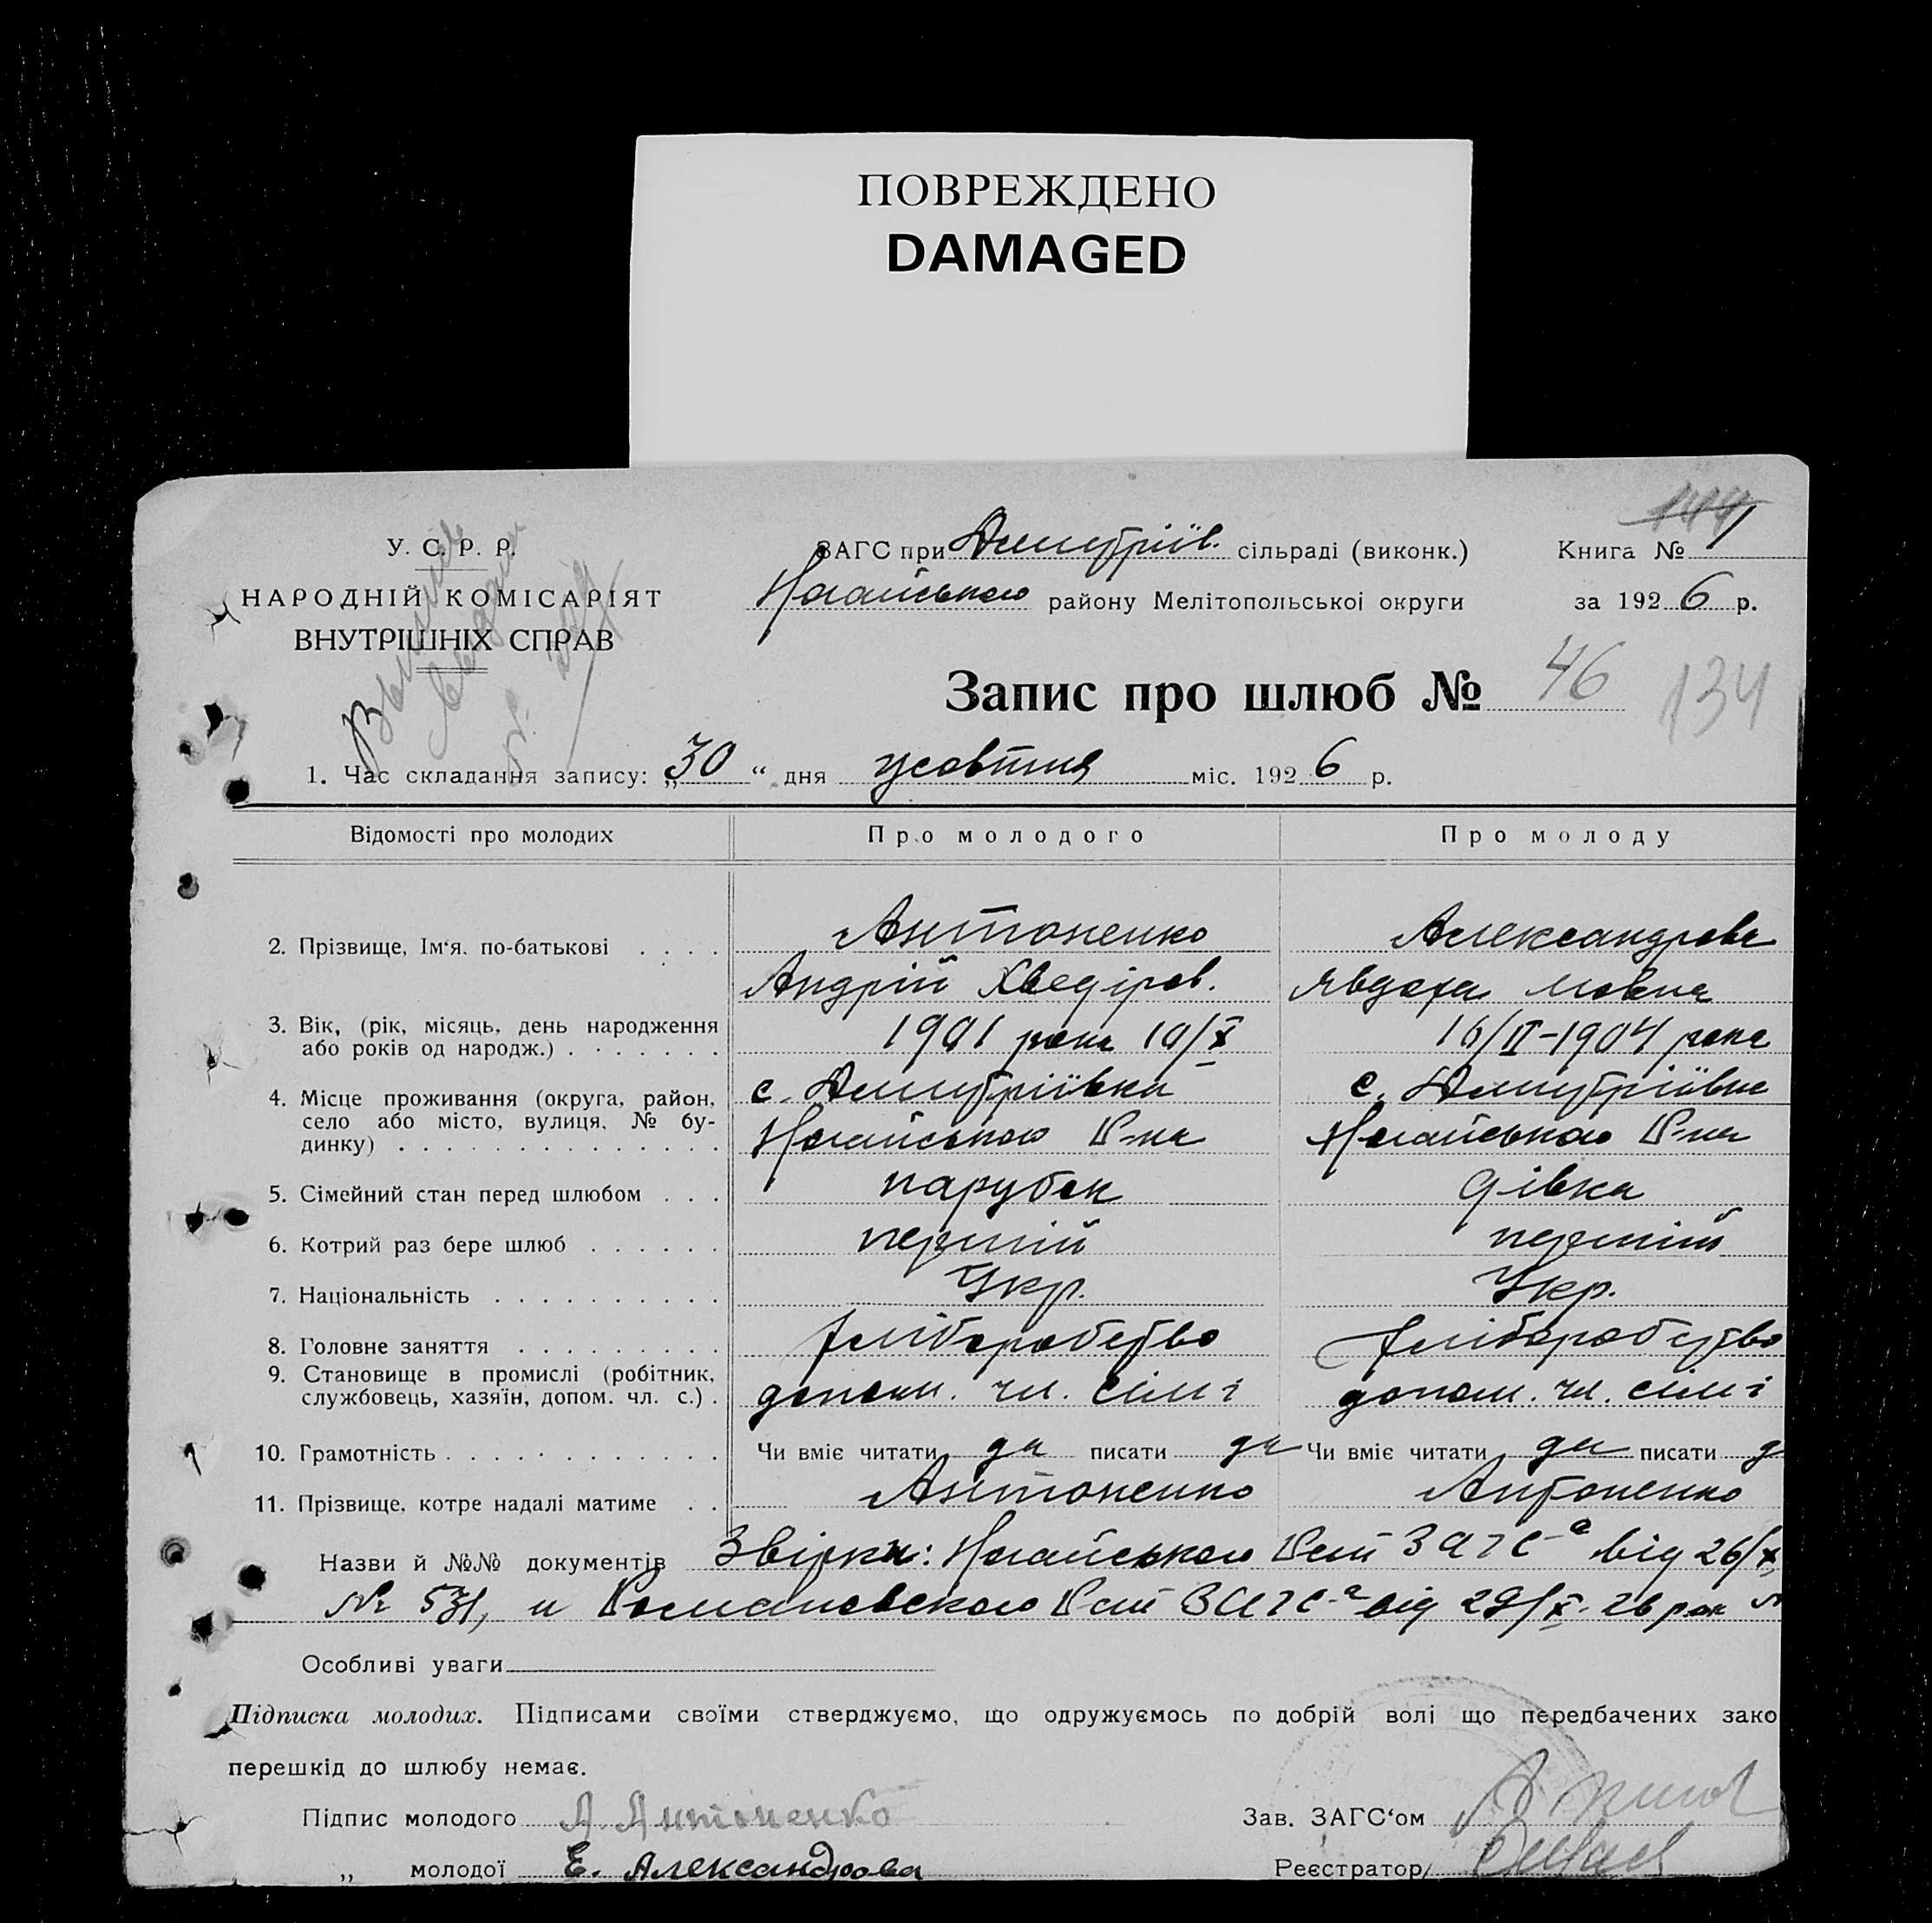 ПОВРЕЖДЕНО
DAMAGED
У. С. Р. Р.
НАРОДНІЙ КОМІСАРІЯТ
ВНУТРІШНІХ СПРАВ
ЗАГС при Дмитріїв. сільраді (виконк.)
Книга №
Ногайського району Мелітопольської округи
за 1926 р.
144
Запис про шлюб № 46
134
1. Час складання запису: „30“ дня жовтня міс. 1926 р.
Відомості про молодих
Про молодого
Про молоду
2. Прізвище, Ім'я, по-батькові . . . .
Антоненко
Александрова
Андрій Хведіров.
Явдоха Мовна
3. Вік, (рік, місяць, день народження
або років од народж.) . . . . . . .
1901 року 10/X
16/II-1904 рока
4. Місце проживання (округа, район,
село або місто, вулиця, № бу-
динку) . . . . . . . . . . . . . .
с. Дмитріївка
с. Дмитріївка
Ногайського Р-на
Ногайського Р-на
5. Сімейний стан перед шлюбом . . .
парубок
дівка
6. Котрий раз бере шлюб . . . . . .
перший
перший
7. Національність . . . . . . . . . .
Укр.
Укр.
8. Головне заняття . . . . . . . . .
хліборобство
хліборобство
9. Становище в промислі (робітник,
службовець, хазяїн, допом. чл. с.) .
допом. чл. сімі
допом. чл. сімі
10. Грамотність . . . . . . . . . . . .
Чи вміє читати да писати да
Чи вміє читати да писати д
11. Прізвище, котре надалі матиме . .
Антоненко
Антоненко
Назви й №№ документів Звірки: Ногайського Рай ЗАГС-а від 26/X
№ 531, и Романовского Рай ЗАГС-а від 29/X-26 рок
Особливі уваги
Підписка молодих. Підписами своїми стверджуємо, що одружуємось по добрій волі що передбачених зако
перешкід до шлюбу немає.
Підпис молодого А. Антоненко
Зав. ЗАГС'ом
„ молодої Е. Александрова
Реєстратор